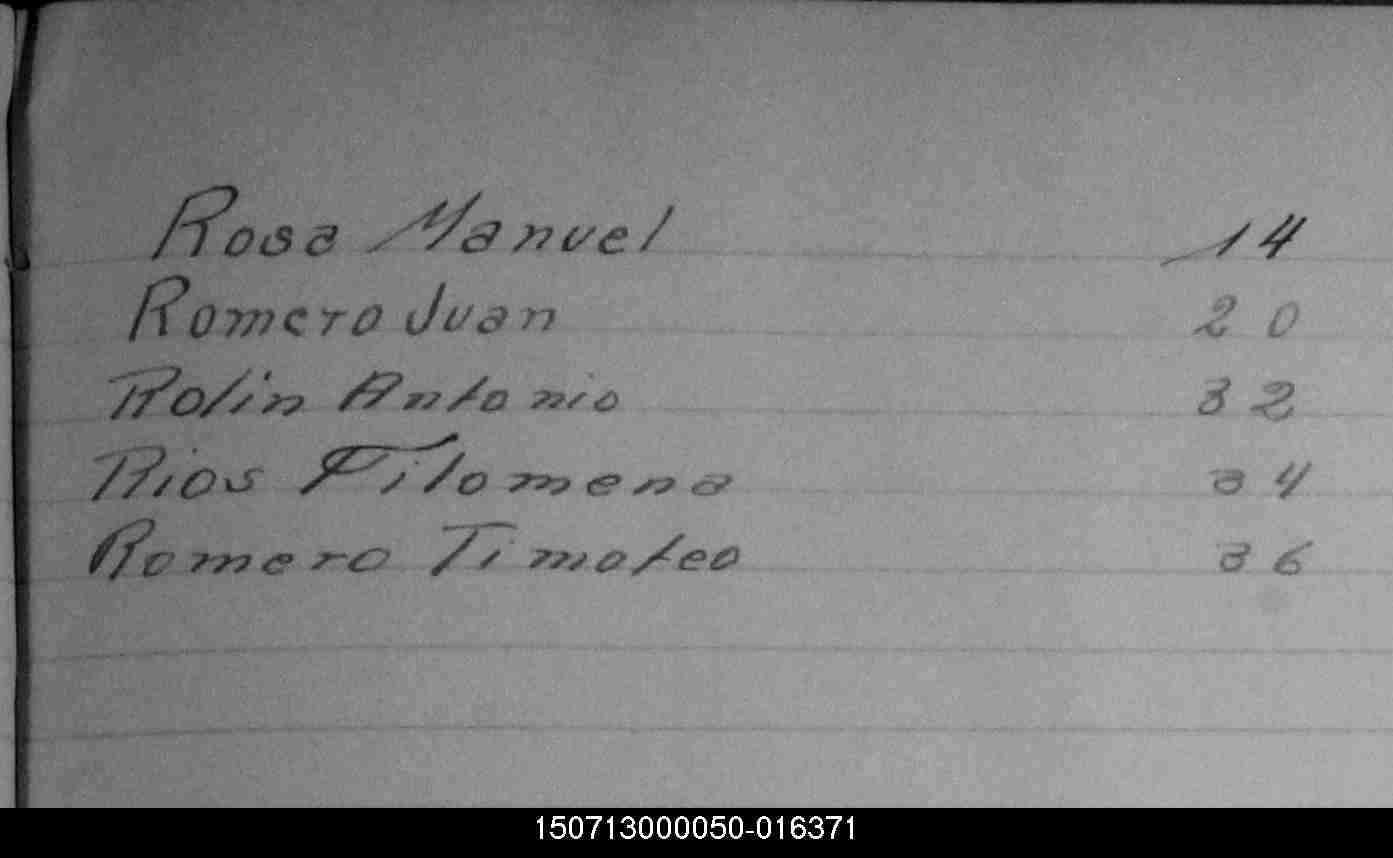 Rosa Manuel 14
Romero Juan 20
Rolin Antonio 32
Rios Filomena 34
Romero Timoteo 36
150713000050-016371